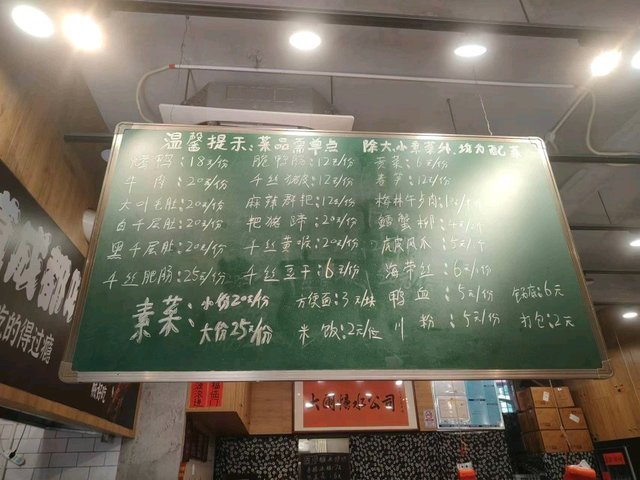 温馨提示、菜品需单点 除大、小素菜外,均为配菜
烤鸭:18元/份 脆鸭肠:12元/份 贡菜:6元/份
牛肉:20元/份 千丝猪皮:12元/份 春笋:12元/份
大叶毛肚:20元/份 麻辣群把:12元/份 梅林午夕肉:
白千层肚:20元/份 粑猪蹄:20元/份 螃蟹柳:
黑千层肚:20元/份 千丝黄喉:20元/份 虎皮凤爪:5元/个
千丝肥肠:25元/份 千丝豆干:6元/份 海带丝:6元/份
素菜:小份20元/份 方便面:3元/块 鸭血:5元/份 锅底:6元
大份25元/份 米饭:2元/位 川粉:5元/份 打包:2元
成都
吃的得过瘾
大闸传水公司